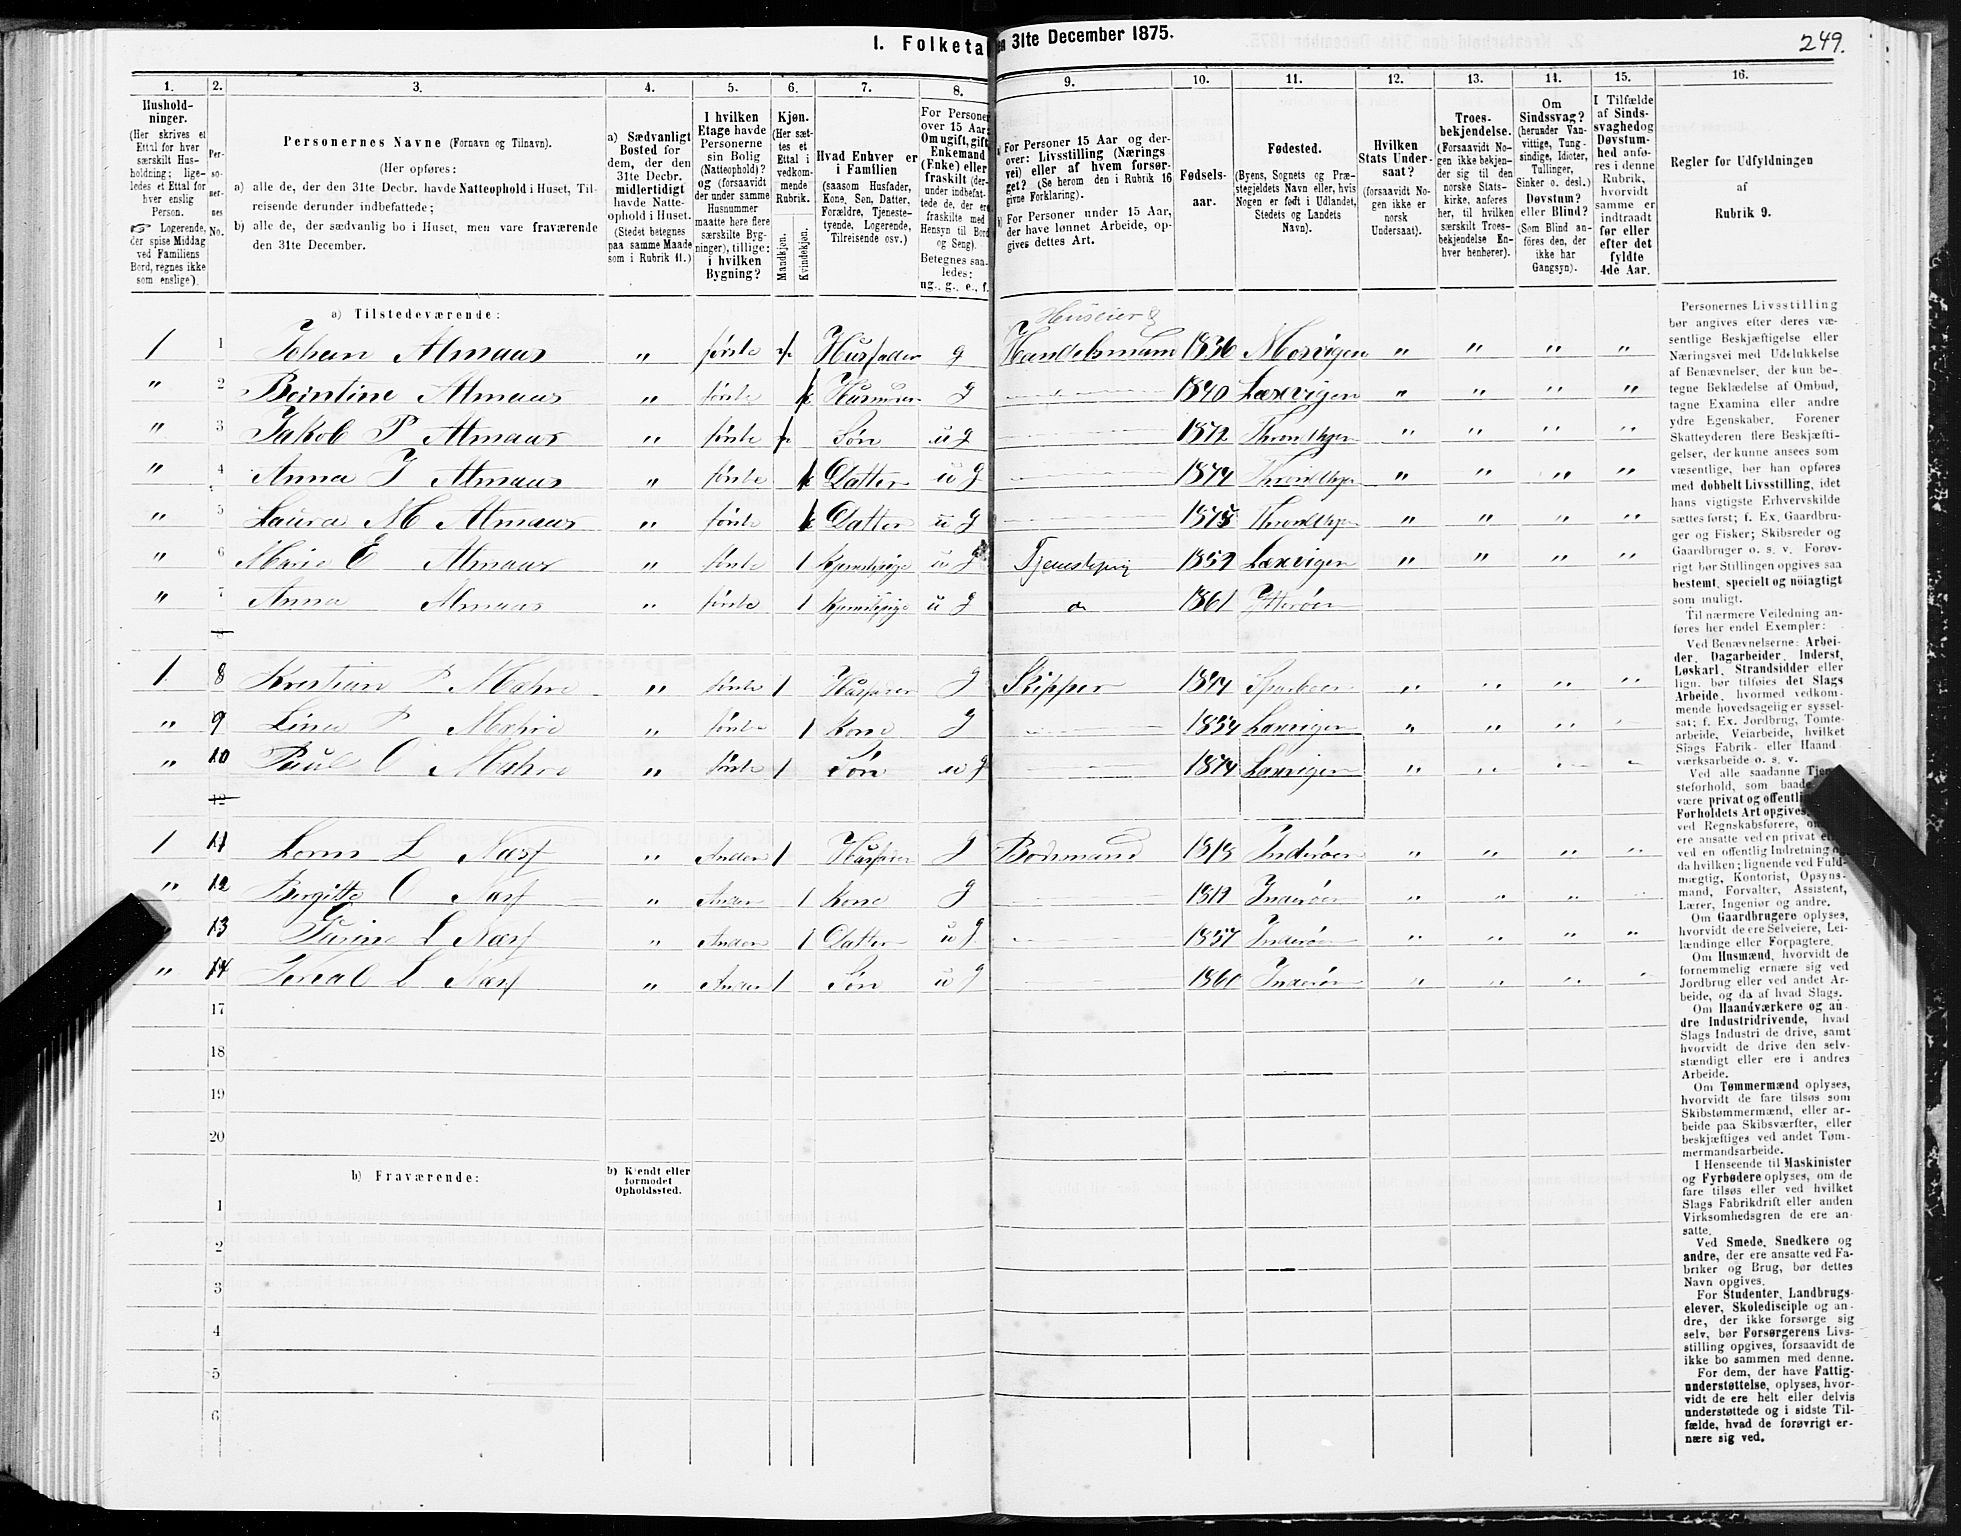 1. Folketa en 31te December 1875.
249.
1. 2. 3. 4. 5. 6. 7. 8. 9. 10. 11. 12. 13. 14. 15. 16.
Hushold-
ninger.
(Her skrives et
Ettal for hver
særskilt Hus-
holdning; lige-
ledes et Ettal for
hver enslig
Person.
☞ Logerende,
der spise Middag
ved Familiens
Bord, regnes ikke
som enslige).
Per-
so-
ner-
nes
No.
Personernes Navne (Fornavn og Tilnavn).
(Her opføres:
a) alle de, der den 31te Decbr. havde Natteophold i Huset, Til-
reisende derunder indbefattede;
b) alle de, der sædvanlig bo i Huset, men vare fraværende
den 31te December.
a) Sædvanligt
Bosted for
dem, der den
31te Decbr.
midlertidigt
havde Natte-
ophold i Huset.
(Stedet betegnes
paa samme Maade
som i Rubrik 11.)
I hvilken
Etage havde
Personerne
sin Bolig
(Natteophold)?
og (forsaavidt
der under samme
Husnummer
maatte høre flere
særskilte Byg-
ninger), tillige:
i hvilken
Bygning?
Kjøn.
(Her sæt-
tes et
Ettal i
vedkom-
mende
Rubrik.
Mandkjøn.
Kvindekjøn.
Hvad Enhver er
i Familien
(saasom Husfader,
Kone, Søn, Datter,
Forældre, Tjeneste-
tyende, Logerende,
Tilreisende osv.)
For Personer
over 15 Aar:
Om ugift, gift,
Enkemand
(Enke) eller
fraskilt (der-
under indbefat-
tede de, der ere
fraskilte med
Hensyn til Bord
og Seng).
Betegnes saa-
ledes:
ug., g., e., f.
a) For Personer 15 Aar og der-
over: Livsstilling (Nærings
vei) eller af hvem forsør-
get? (Se herom den i Rubrik 16
givne Forklaring).
b) For Personer under 15 Aar,
der have lønnet Arbeide, op-
gives dettes Art.
Fødsels-
aar.
Fødested.
(Byens, Sognets og Præ-
stegjeldets Navn eller, hvis
Nogen er født i Udlandet,
Stedets og Landets
Navn).
Hvilken
Stats Under-
saat?
(forsaavidt No-
gen ikke er
norsk
Undersaat).
Troes-
bekjendelse.
(Forsaavidt No-
gen ikke bekjen-
der sig til den
norske Stats-
kirke, anføres
her, til hvilken
særskilt Troes-
bekjendelse En-
hver henhører).
Om
Sindssvag?
(herunder Van-
vittige, Tung-
sindige, Idioter,
Tullinger,
Sinker o. desl.)
Døvstum?
eller Blind?
(Som Blind an-
føres den, der
ikke har
Gangsyn).
I Tilfælde
af Sinds-
svaghed og
Døvstum-
hed anfø-
res i denne
Rubrik,
hvorvidt
samme er
indtraadt
før eller
efter det
fyldte
4de Aar.
Regler for Udfyldningen
af
Rubrik 9.
a) Tilstedeværende:
Huseier &
1 1 Johan Almaas " første 1 Husfader g Handelsmann 1836 Mosvigen " " " "
" 2 Beintine Almaas " første 1 Husmoder g 1840 Lexvigen " " " "
" 3 Jakob P Almaas " første 1 Søn u g 1872 Throndhjem " " " "
" 4 Anna J Almaas " første 1 Datter u g 1874 Throndhjem " " " "
" 5 Laura M Almaas " første 1 Datter u g 1875 Throndhjem " " " "
" 6 Marie E Almaas " første 1 Tjenestepige u g Tjenestepig 1852 Lexvigen " " " "
" 7 Anna Almaas " første 1 Tjenestepige u g do 1861 Ytterøen
8
1 8 Kristian P Mahre " første 1 Husfader g Skipper 1844 Sparboen " " " "
" 9 Lina P Mahre " første 1 Kone g 1854 Lexvigen " " "
" 10 Paul O Mahre " første 1 Søn u g 1874 Lexvigen " "
12
1 11 Lorns L Næss " Anden 1 Husfader g Bodsmand 1813 Inderøen " " " "
" 12 Birgitte O Næss " Anden 1 Kone g 1812 Inderøen " " "
13 L Næss " Anden 1 Datter u g 1857 Inderøen " " " "
" 14 L Næss " Anden 1 Søn u g 1860 Inderøn " " "
17
18
19
20
b) Fraværende:
b) Kjendt eller
formodet
Opholdssted.
1
2
3
4
5
6
Personernes Livsstilling
bør angives efter deres væ-
sentlige Beskjæftigelse eller
Næringsvei med Udelukkelse
af Benævnelser, der kun be-
tegne Beklædelse af Ombud,
tagne Examina eller andre
ydre Egenskaber. Forener
Skatteyderen flere Beskjæfti-
gelser, der kunne ansees som
væsentlige, bør han opføres
med dobbelt Livsstilling, idet
hans vigtigste Erhvervskilde
sættes først; f. Ex. Gaardbru-
ger og Fisker; Skibsreder og
Gaardbruger o. s. v. Forøv-
rigt bør Stillingen opgives saa
bestemt, specielt og nøiagtigt
som muligt.
Til nærmere Veiledning an-
føres her endel Exempler:
Ved Benævnelserne: Arbei-
der, Dagarbeider, Inderst,
Løskarl, Strandsidder eller
lign. bør tilføies det Slags
Arbeide, hvormed vedkom-
mende hovedsagelig er syssel-
sat; f. Ex. Jordbrug, Tomte-
arbeide, Veiarbeide, hvilket
Slags Fabrik- eller Haand
værksarbeide o. s. v.
Ved alle saadanne Tjene-
steforhold, som baade
være privat og offentlig
Forholdets Art opgives,
ved Regnskabsførere, om
ere ansatte ved en privat eller
ved en offentlig Indretning og
da hvilken; lignende ved Fuld-
mægtig, Kontorist, Opsyns-
mand, Forvalter, Assistent,
Lærer, Ingeniør og andre.
Om Gaardbrugere oplyses,
hvorvidt de ere Selveiere, Lei-
lændinge eller Forpagtere.
Om Husmænd, hvorvidt de
fornemmelig ernære sig ved
Jordbrug eller ved andet Ar-
beide, og da af hvad Slags.
Om Haandværkere og an-
dre Industridrivende, hvad
Slags Industri de drive, samt
hvorvidt de drive den selv-
stændigt eller ere i andres
Arbeide.
Om Tømmermænd oplyses,
hvorvidt de fare tilsøs som
Skibstømmermænd, eller ar-
beide paa Skibsværfter, eller
beskjæftiges ved andet Tøm-
mermandsarbeide.
I Henseende til Maskinister
og Fyrbødere oplyses, om de
fare tilsøs eller ved hvilket
Slags Fabrikdrift eller anden
Virksomhedsgren de ere an-
satte.
Ved Smede, Snedkere og
andre, der ere ansatte ved Fa-
briker og Brug, bør dettes
Navn opgives.
For Studenter, Landbrugs-
elever, Skoledisciple og an-
dre, der ikke forsørge sig
selv, bør Forsørgerens Livs-
stilling opgives, forsaavidt de
ikke bo sammen med denne.
For dem, der have Fattig-
understøttelse, oplyses, hvor-
vidt de ere helt eller delvis
understøttede og i sidste Til-
fælde, hvad de forøvrigt er-
nære sig ved.